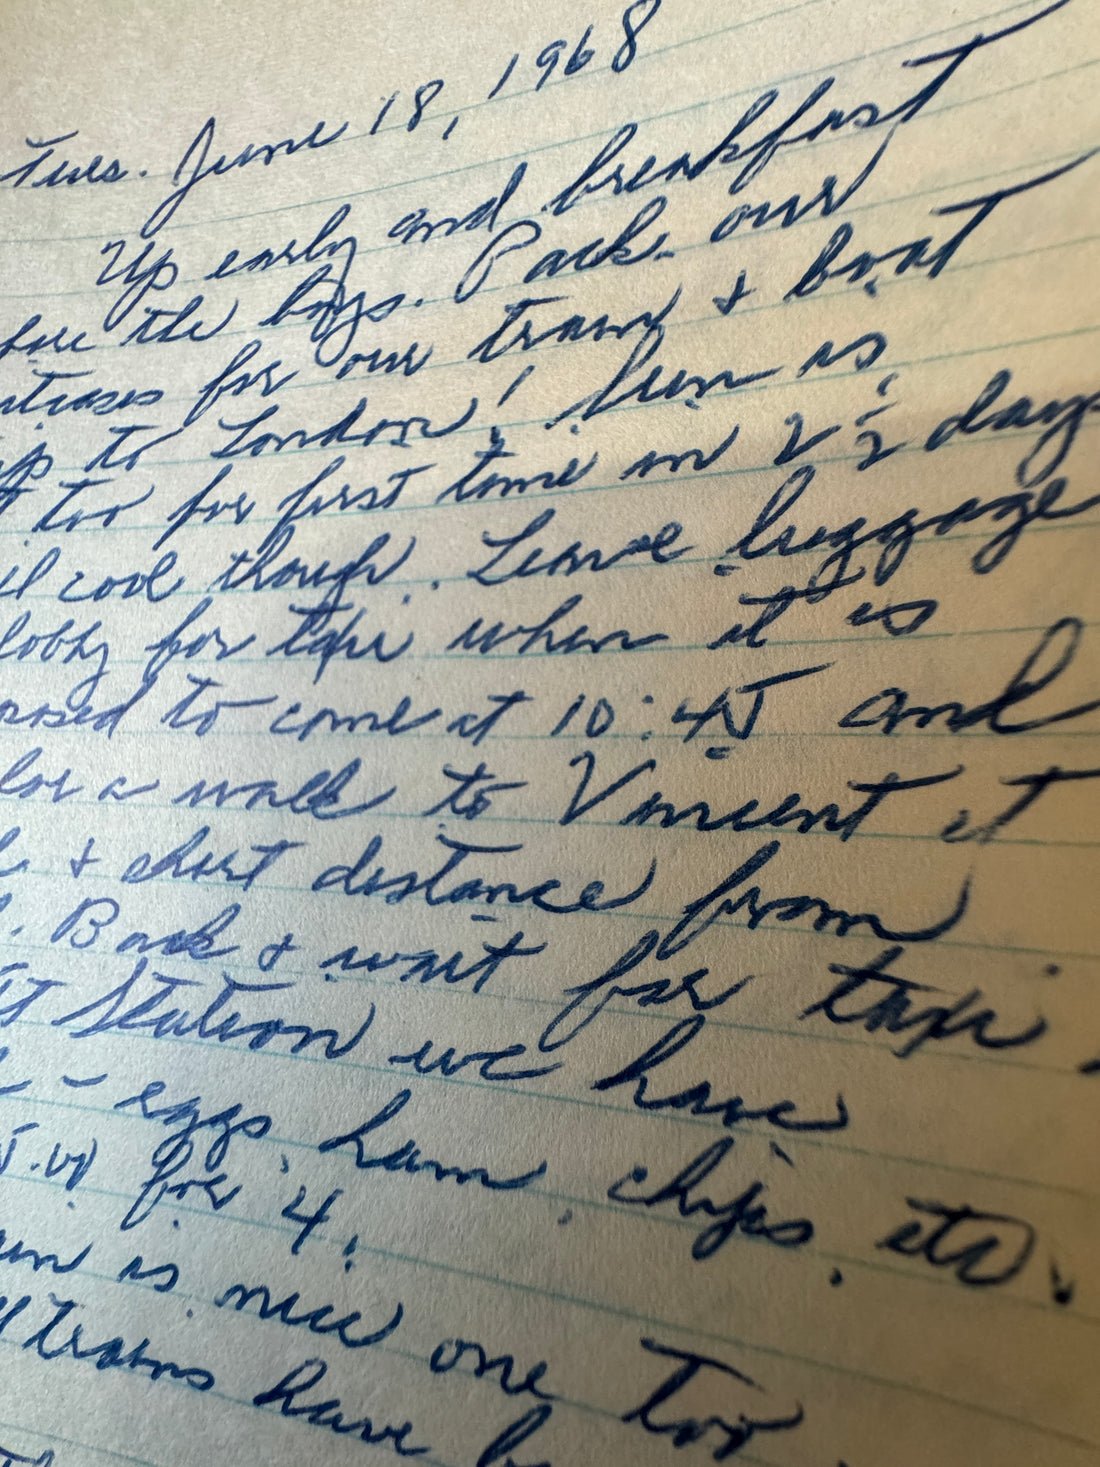 Tues. June 18, 1968
Up early and breakfast
the boys. Pack our
for our train & boat
to London! Sun is
too for first time in 2 1/2 days
cool though. Leave luggage
lobby for taxi when it is
to come at 10:45 and
for a walk to Vincent it
& short distance from
. Back & wait for taxi.
Station we have
- eggs, ham, chips, etc.
.00 for 4.
is nice one too
trains have